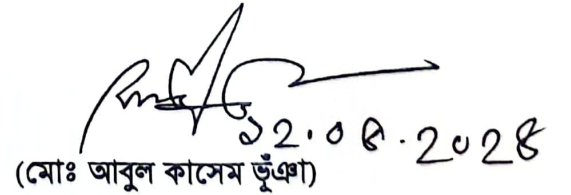 ১২.০৪.২০২৪
(মোঃ আবুল কাসেম ভূঁঞা)